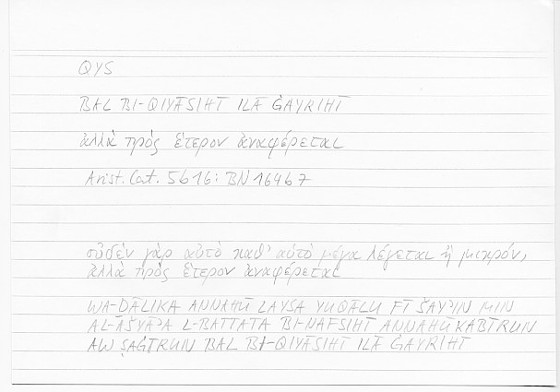 QYS
BAL BI-QIYĀSIHĪ ILĀ ĠAYRIHĪ
ἀλλὰ πρὸς ἕτερον ἀναφέρεται
Arist. Cat. 5b16: BN 164b7
οὐδὲν γὰρ αὐτὸ καθ' αὑτὸ μέγα λέγεται ἢ μικρόν,
ἀλλὰ πρὸς ἕτερον ἀναφέρεται
WA-ḎĀLIKA ANNAHŪ LAYSA YUQĀLU FĪ ŠAYʾIN MIN
AL-AŠYĀʾA L-BATTATA BI-NAFSIHĪ ANNAHŪ KABĪRUN
AW ṢAĠĪRUN BAL BI-QIYĀSIHĪ ILĀ ĠAYRIHĪ